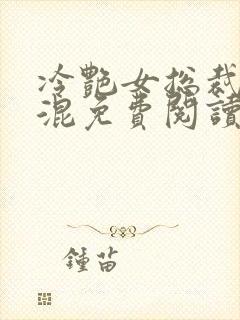 冷艷女總裁
混免費閱讀
鍾苗